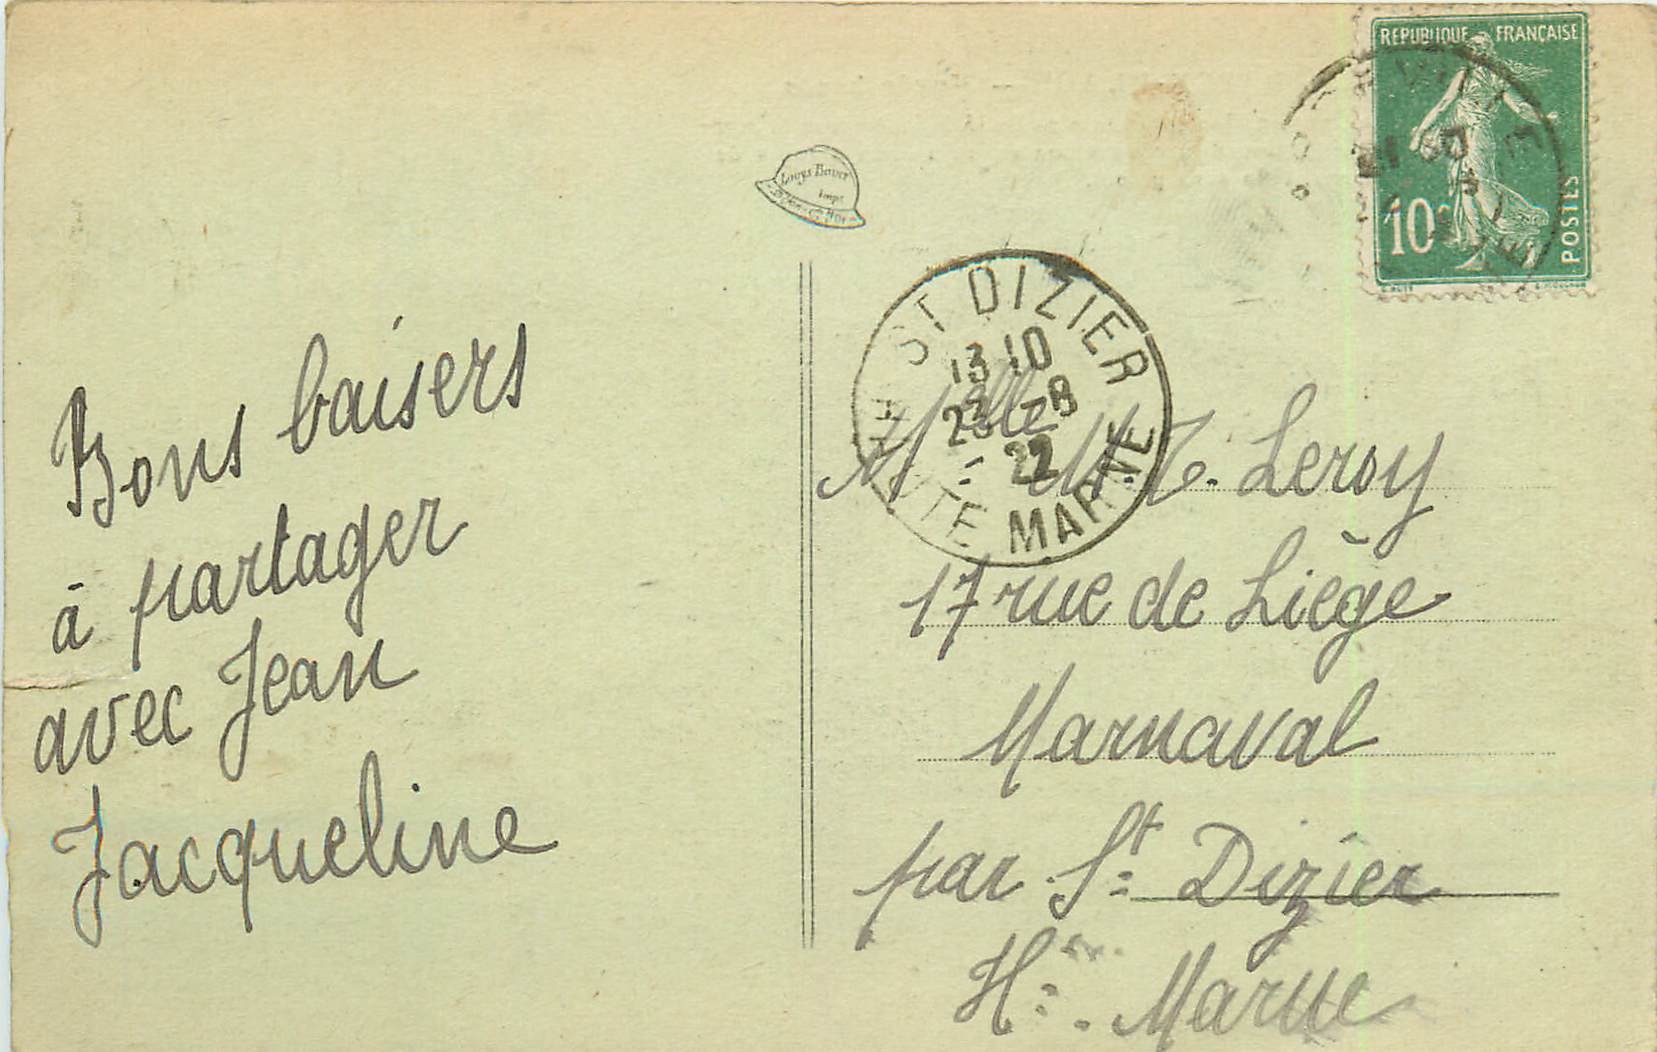 Bons baisers
à partager
avec Jean
Jacqueline
REPUBLIQUE FRANÇAISE
10c
POSTES
ST DIZIER
13 10
23 - 8
22
HAUTE MARNE
Melle M.T. Leroy
17 rue de Liège
Marnaval
par St Dizier
Hte. Marne